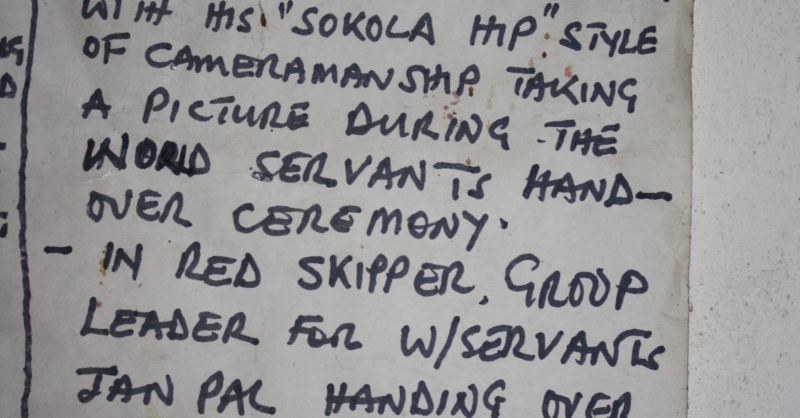 WITH HIS "SOKOLA HIP" STYLE
OF CAMERAMANSHIP TAKING
A PICTURE DURING THE
WORLD SERVANTS HAND-
OVER CEREMONY.
- IN RED SKIPPER, GROUP
LEADER FOR W/SERVANTS
JAN PAL HANDING OVER